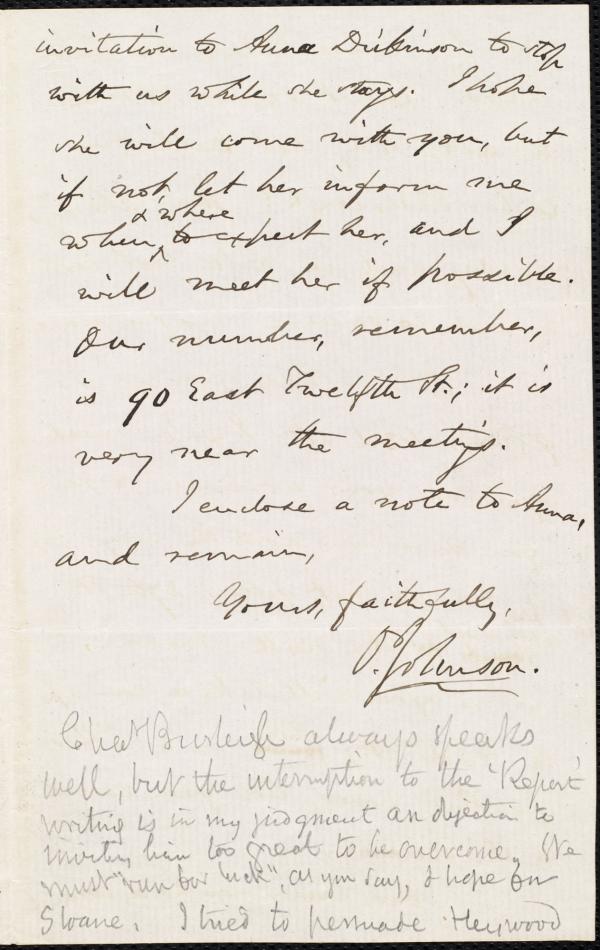 invitation to Anna Dickinson to stop
with us while she stays. I hope
she will come with you, but
if not, let her inform me
& where
when to expect her, and I
will meet her if possible.
Our number, remember,
is 90 East Twelfth St.; it is
very near the meetings.
I enclose a note to Anna,
and remain,
Yours, faithfully,
O. Johnson.
Chas Burleigh always speaks
well, but the interruption to the 'Report'
writing is in my judgment an objection to
inviting him too great to be overcome. We
must "run for luck", as you say, & hope for
Sloane. I tried to persuade Heywood